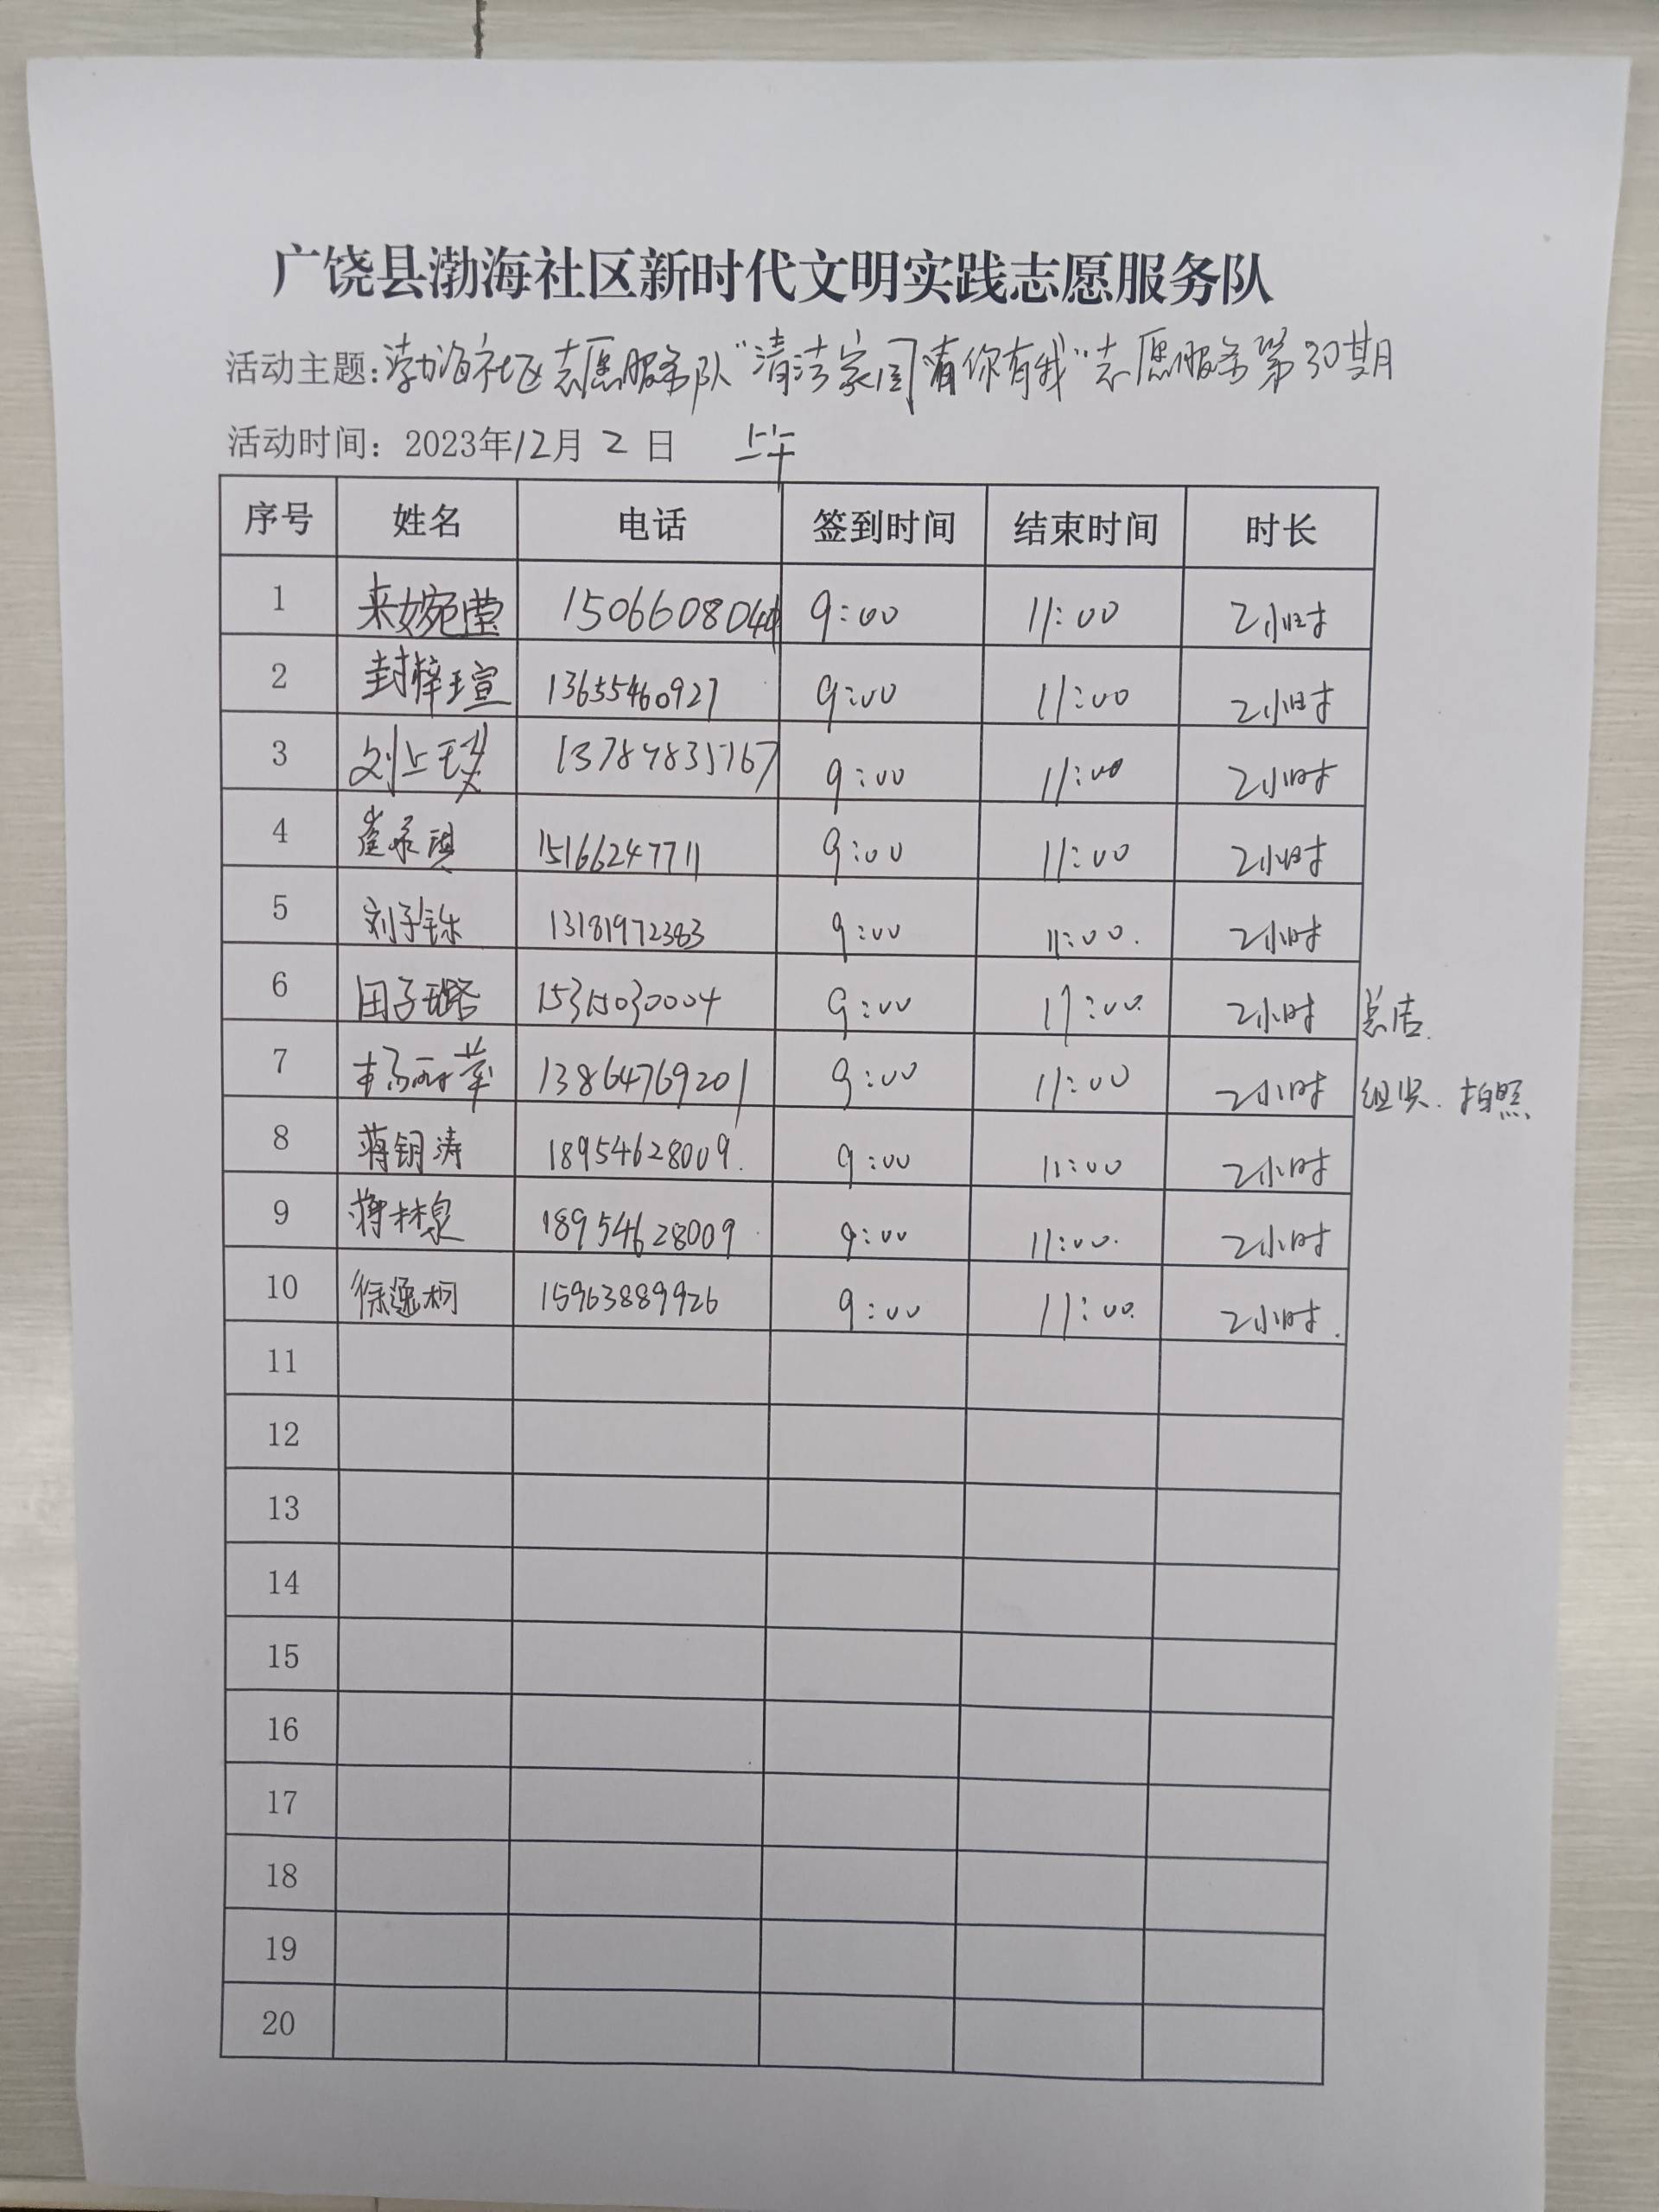 广饶县渤海社区新时代文明实践志愿服务队
活动主题:渤海社区志愿服务队"清洁家园有你有我"志愿服务第30期
活动时间: 2023年12月2日 上午
序号 姓名 电话 签到时间 结束时间 时长
1 来婉莹 1506608044 9:00 11:00 2小时
2 封梓瑄 13655460927 9:00 11:00 2小时
3 刘上 9:00 11:00 2小时
4 崔 琪 15166247711 9:00 11:00 2小时
5 刘子铄 13181972383 9:00 11:00. 2小时
6 田子璐 15315030004 9:00 11:00. 2小时 总结.
7 杨雨苹 13864769201 9:00 11:00 2小时 组织.拍照
8 蒋钥涛 18954628009. 9:00 11:00 2小时
9 蒋林泉 18954628009 9:00 11:00. 2小时
10 徐逸柯 15963889926 9:00 11:00. 2小时.
11
12
13
14
15
16
17
18
19
20